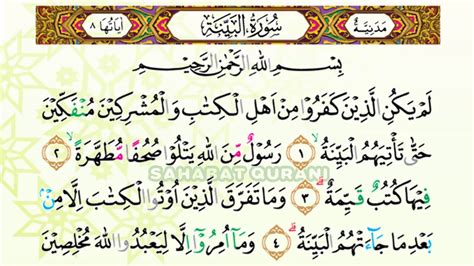 مَدَنِيَّةٌ سُورَةُ الْبَيِّنَةِ اٰيَاتُهَا ٨
بِسْمِ اللهِ الرَّحْمٰنِ الرَّحِيْمِ
لَمْ يَكُنِ الَّذِيْنَ كَفَرُوْا مِنْ اَهْلِ الْكِتٰبِ وَالْمُشْرِكِيْنَ مُنْفَكِّيْنَ
حَتّٰى تَأْتِيَهُمُ الْبَيِّنَةُ ۙ ١ رَسُوْلٌ مِّنَ اللهِ يَتْلُوْا صُحُفًا مُّطَهَّرَةً ۙ ٢
SAHABAT QURANI
فِيْهَا كُتُبٌ قَيِّمَةٌ ۗ ٣ وَمَا تَفَرَّقَ الَّذِيْنَ اُوْتُوا الْكِتٰبَ اِلَّا مِنْۢ
بَعْدِ مَا جَاۤءَتْهُمُ الْبَيِّنَةُ ۗ ٤ وَمَآ اُمِرُوْٓا اِلَّا لِيَعْبُدُوا اللهَ مُخْلِصِيْنَ